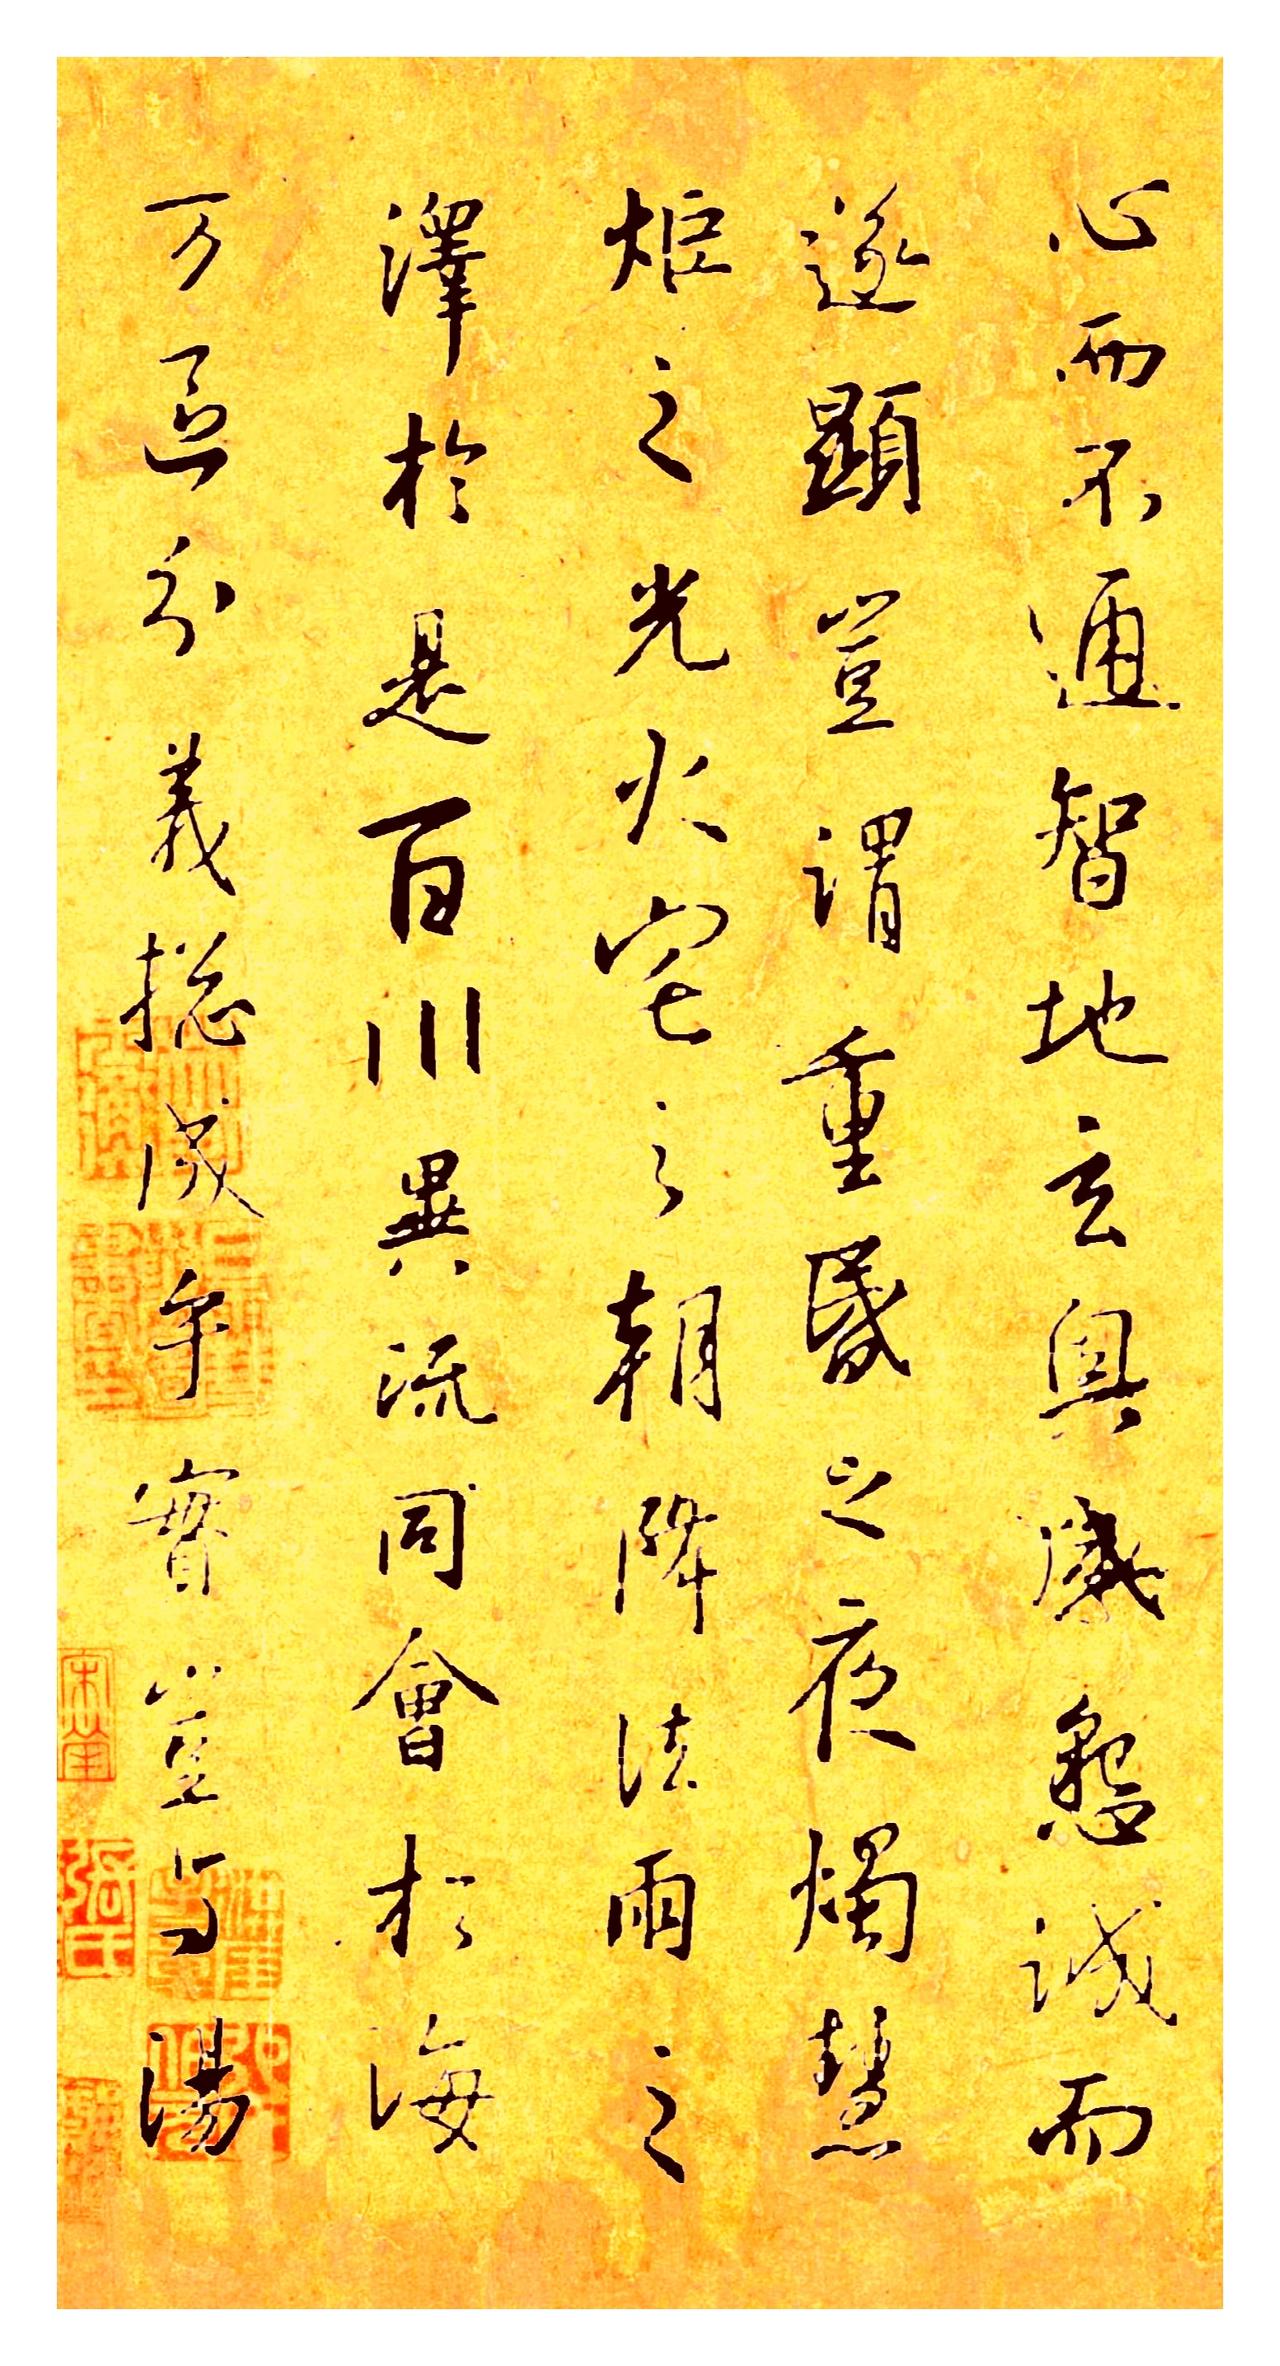 心而不通智地玄奧感懇誠而
遂顯豈謂重昬之夜燭慧
炬之光火宅之朝降法雨之
澤於是百川異流同會於海
万區分義揔成乎實豈与湯